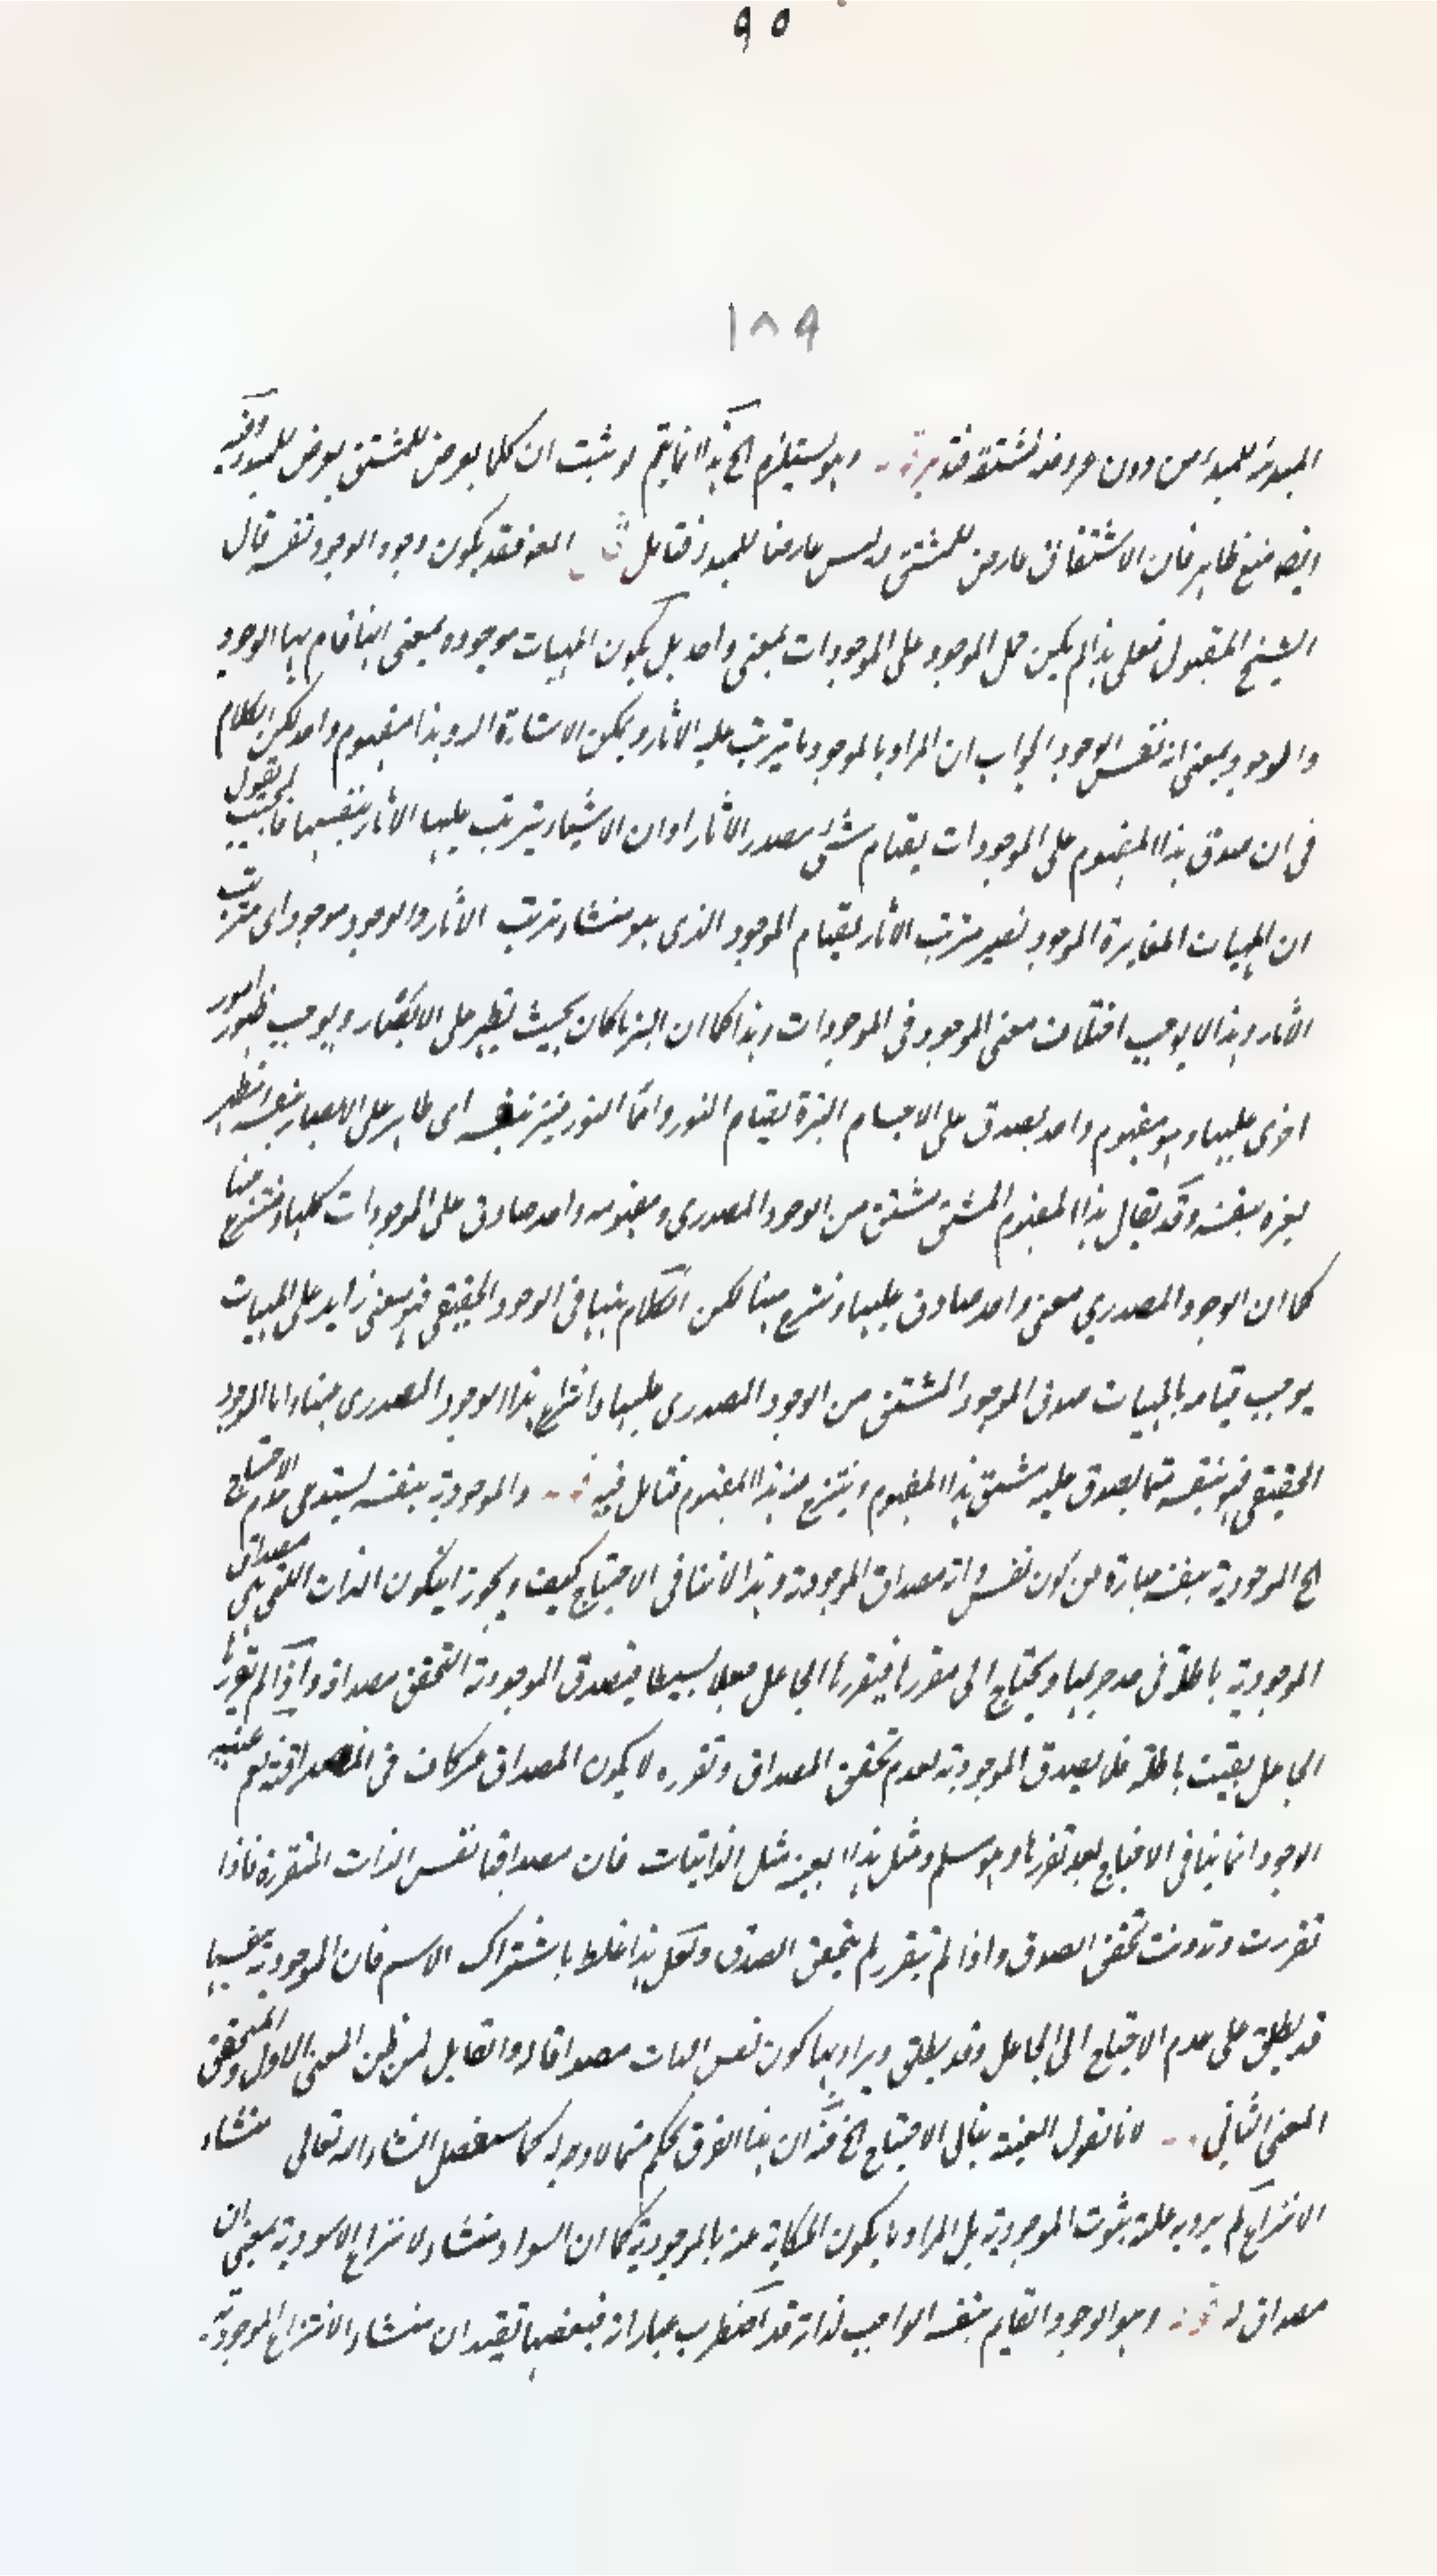 ٩٥
١٨٩
المبدئية للمبدء من دون عروضه لمشتقه فتدبر قوله وهو يستلزم الخ هذا انما يتم لو ثبت ان كلما يعرض للمشتق يعرض للمبدء وفيه
ايضا منع ظاهر فان الاشتقاق عارض للمشتق وليس عارضا للمبدء فتامل فقد يكون وجود الوجود نفسه قال
الشيخ المقبول فعلى هذا لم يكن حمل الموجود على الموجودات بمعنى واحد بل يكون المهيات موجودة بمعنى انها قام بها الوجود
والموجود بمعنى انه نفس الوجود الجواب ان المراد بالموجود ما يترتب عليه الاثار ويمكن الاشارة اليه وهذا مفهوم واحد لكن الكلام
فى ان صدق هذا المفهوم على الموجودات بقيام شئ مصدر الاثار او ان الاشياء يترتب عليها الاثار بنفسها فالمجيب يقول
ان المهيات المغايرة الموجود تصير مترتب الاثار بقيام الموجود الذى هو منشاء ترتب الاثار والوجود موجود اى مترتب
الاثار وهذا لا يوجب اختلاف معنى الموجود فى الموجودات وهذا كما ان النير ما كان بحيث يظهر على الابصار ويوجب ظهور امور
اخرى عليها وهو مفهوم واحد يصدق على الاجسام النيرة بقيام النور واما النور فنير بنفسه اى ظاهر على الابصار بنفسه مظهر
لغيره بنفسه وقد يقال هذا المفهوم المشتق مشتق من الوجود المصدرى ومفهومه واحد صادق على الموجودات كلها ومنتزع منها
كما ان الوجود المصدري معنى واحد صادق عليها ومنتزع منها لكن الكلام ههنا فى الوجود الحقيقي فهو معنى زايد على المهيات
يوجب قيامه بالمهيات صدق الموجود المشتق من الوجود المصدرى عليها وانتزاع هذا الوجود المصدرى منها واما الوجود
الحقيقي فهو بنفسه مما يصدق عليه مشتق هذا المفهوم وينتزع منه هذا المفهوم فتامل فيه قوله والموجودية بنفسه يستدعى عدم الاحتياج
الخ الموجودية بنفسه عبارة عن كون نفس ذاته مصداق الموجودية وهذا لا ينافى الاحتياج كيف ويجوز ان يكون الذات التى هى مصداق
الموجودية باطلة فى حد جوهرها ويحتاج الى مقررها فيقررها الجاعل جعلا بسيطا فيصدق الموجودية التحقق مصداقه واذا لم يقررها
الجاعل بقيت باطلة فلا يصدق الموجودية لعدم تحقق المصداق وتقرره لا يكون المصداق عن كاف فى المصداقية نعم عينية
الوجود انما ينافى الاحتياج بعد تقررها وهو مسلم ومثل هذا بعينه مثل الذاتيات فان مصداقها نفس الذات المتقررة فاذا
تقررت وتذوتت تحقق الصدق واذا لم يتقرر لم يتحقق الصدق ولعل هذا غلط باشتراك الاسم فان الموجودية بنفسها
قد يطلق على عدم الاحتياج الى الجاعل وقد يطلق ويراد بها كون نفس الذات مصداقا له والقايل لمن ظن المعنى الاول والمتحقق
المعنى الثانى قوله لانا نقول العينية ينافى الاحتياج الخ قد ان هذا الفرق تحكم مما لا وجه له كما سيفصل انشاء الله تعالى منشاء
الانتزاع لم يرد به علة ثبوت الموجودية بل المراد ما يكون الحكاية عنه بالموجودية كما ان السواد منشاء لانتزاع الاسودية بمعنى ان
مصداق له قوله وهو الوجود القايم بنفسه الواجب لذاته قد اضطرب عباراته فبعضها يفيد ان منشاء الانتزاع الموجودية